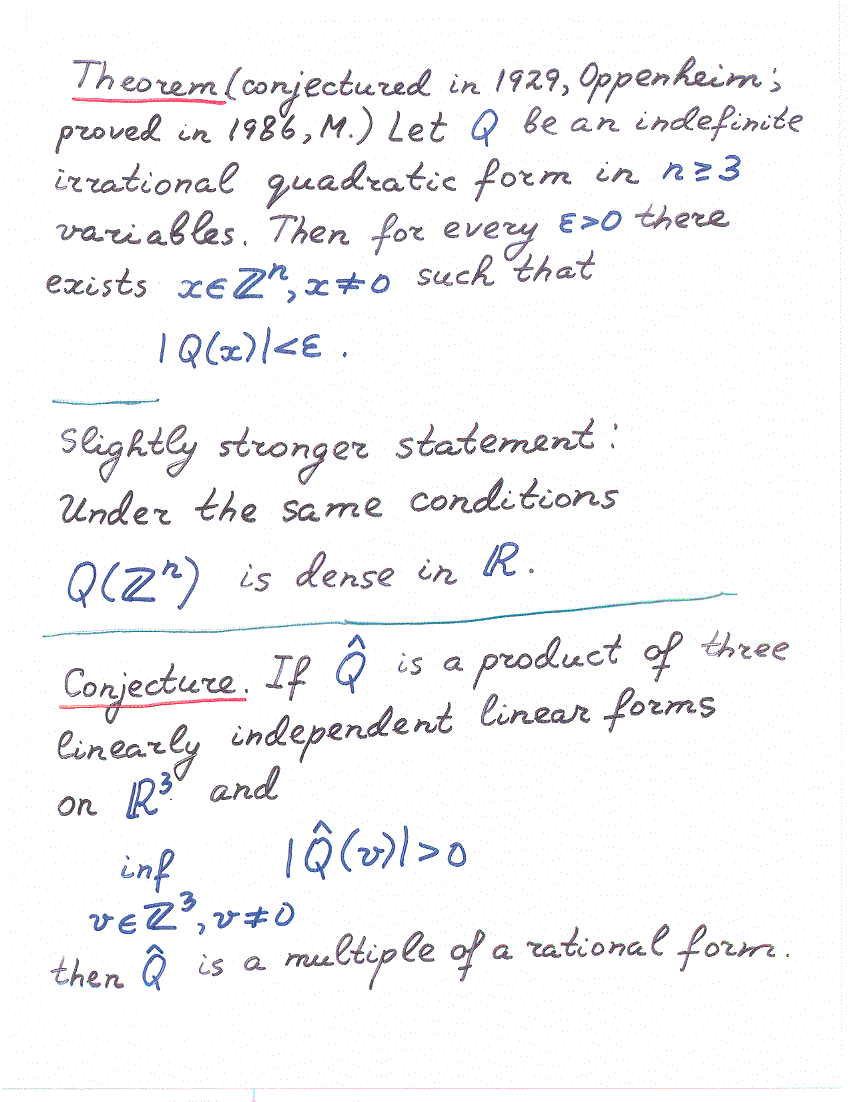 Theorem (conjectured in 1929, Oppenheim;
proved in 1986, M.) Let Q be an indefinite
irrational quadratic form in n≥3
variables. Then for every ε>0 there
exists x∈ℤⁿ, x≠0 such that
|Q(x)|<ε.
Slightly stronger statement:
Under the same conditions
Q(ℤⁿ) is dense in ℝ.
Conjecture. If Q̂ is a product of three
linearly independent linear forms
on ℝ³ and
inf |Q̂(v)|>0
v∈ℤ³, v≠0
then Q̂ is a multiple of a rational form.